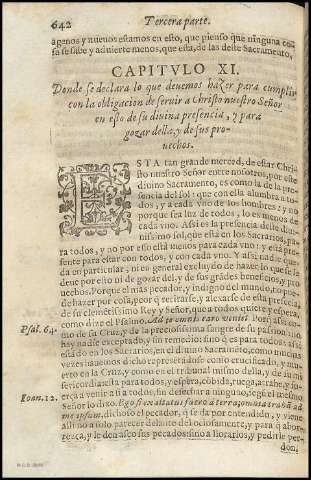 642 Tercera parte.
agenos y nueuos estamos en esto, que pienso que ninguna co-
sa se sabe y aduierte menos, que esta, de las deste Sacramento,
CAPITVLO XI.
Donde se declara lo que deuemos hazer para cumplir
con la obligacion de seruir a Christo nuestro Señor
en esto de su diuina presencia, y para
gozar della, y de sus pro-
uechos.
ESTA tan grande merced, de estar Chri-
sto nuestro Señor entre nosotros, por este
diuino Sacramento, es como la de la pre-
sencia del sol: que con ella alumbra a to-
dos, y a cada vno de los hombres: y no
porque sea luz de todos, lo es menos de
cada vno. Assi es la presencia deste diui-
nissimo sol, que està en los Sacrarios, pa-
ra todos, y no por esso està menos para cada vno: y està pre-
sente para estar con todos, y con cada vno. Y assi, nadie que-
da en particular, ni en general excluydo de hazer lo que se la
deue por esto ni de gozar del, y de sus grandes beneficios, y pro-
uechos. Porque el mas pecador, y indigno del mundo,
de hazer por cosa, peor q̃ retirarse, y alexarse de esta presencia,
de su clementissimo Rey y Señor, que a todos quiere y espera,
Psal. 64. como dize el Psalmo, Ad te omnis caro veniet. Don
mo de su Cruz, y de la preciosissima sangre de su passion no
hay nadie exceptado, y sin remedio; sino q̃ es para todos:
està do en los Sacrarios, en el diuino Sacramẽto, como muchas
vezes hauemos dicho representado se como crucificado, y mu-
erto en la Cruz, y como en el tribunal mismo della, y de su mi-
sericordia esta para todos, y elpera, cõbida, ruega, atrahe, y
Ioan. 12. erça a venir a si a todos, sin desechar a ninguno, cõ q̃ el mesmo
Señor dixo. Ego si exaltatus fuero à terra, omnia traham ad
me ipsum. dichoso el pecador, q̃ se da por entendido, y viene
Alli no a solo parecer delante del ocioſamente, y para q̃ abor-
rezca, y le den asco sus pecados: sino a llorarlos, y pedirle per-
don,